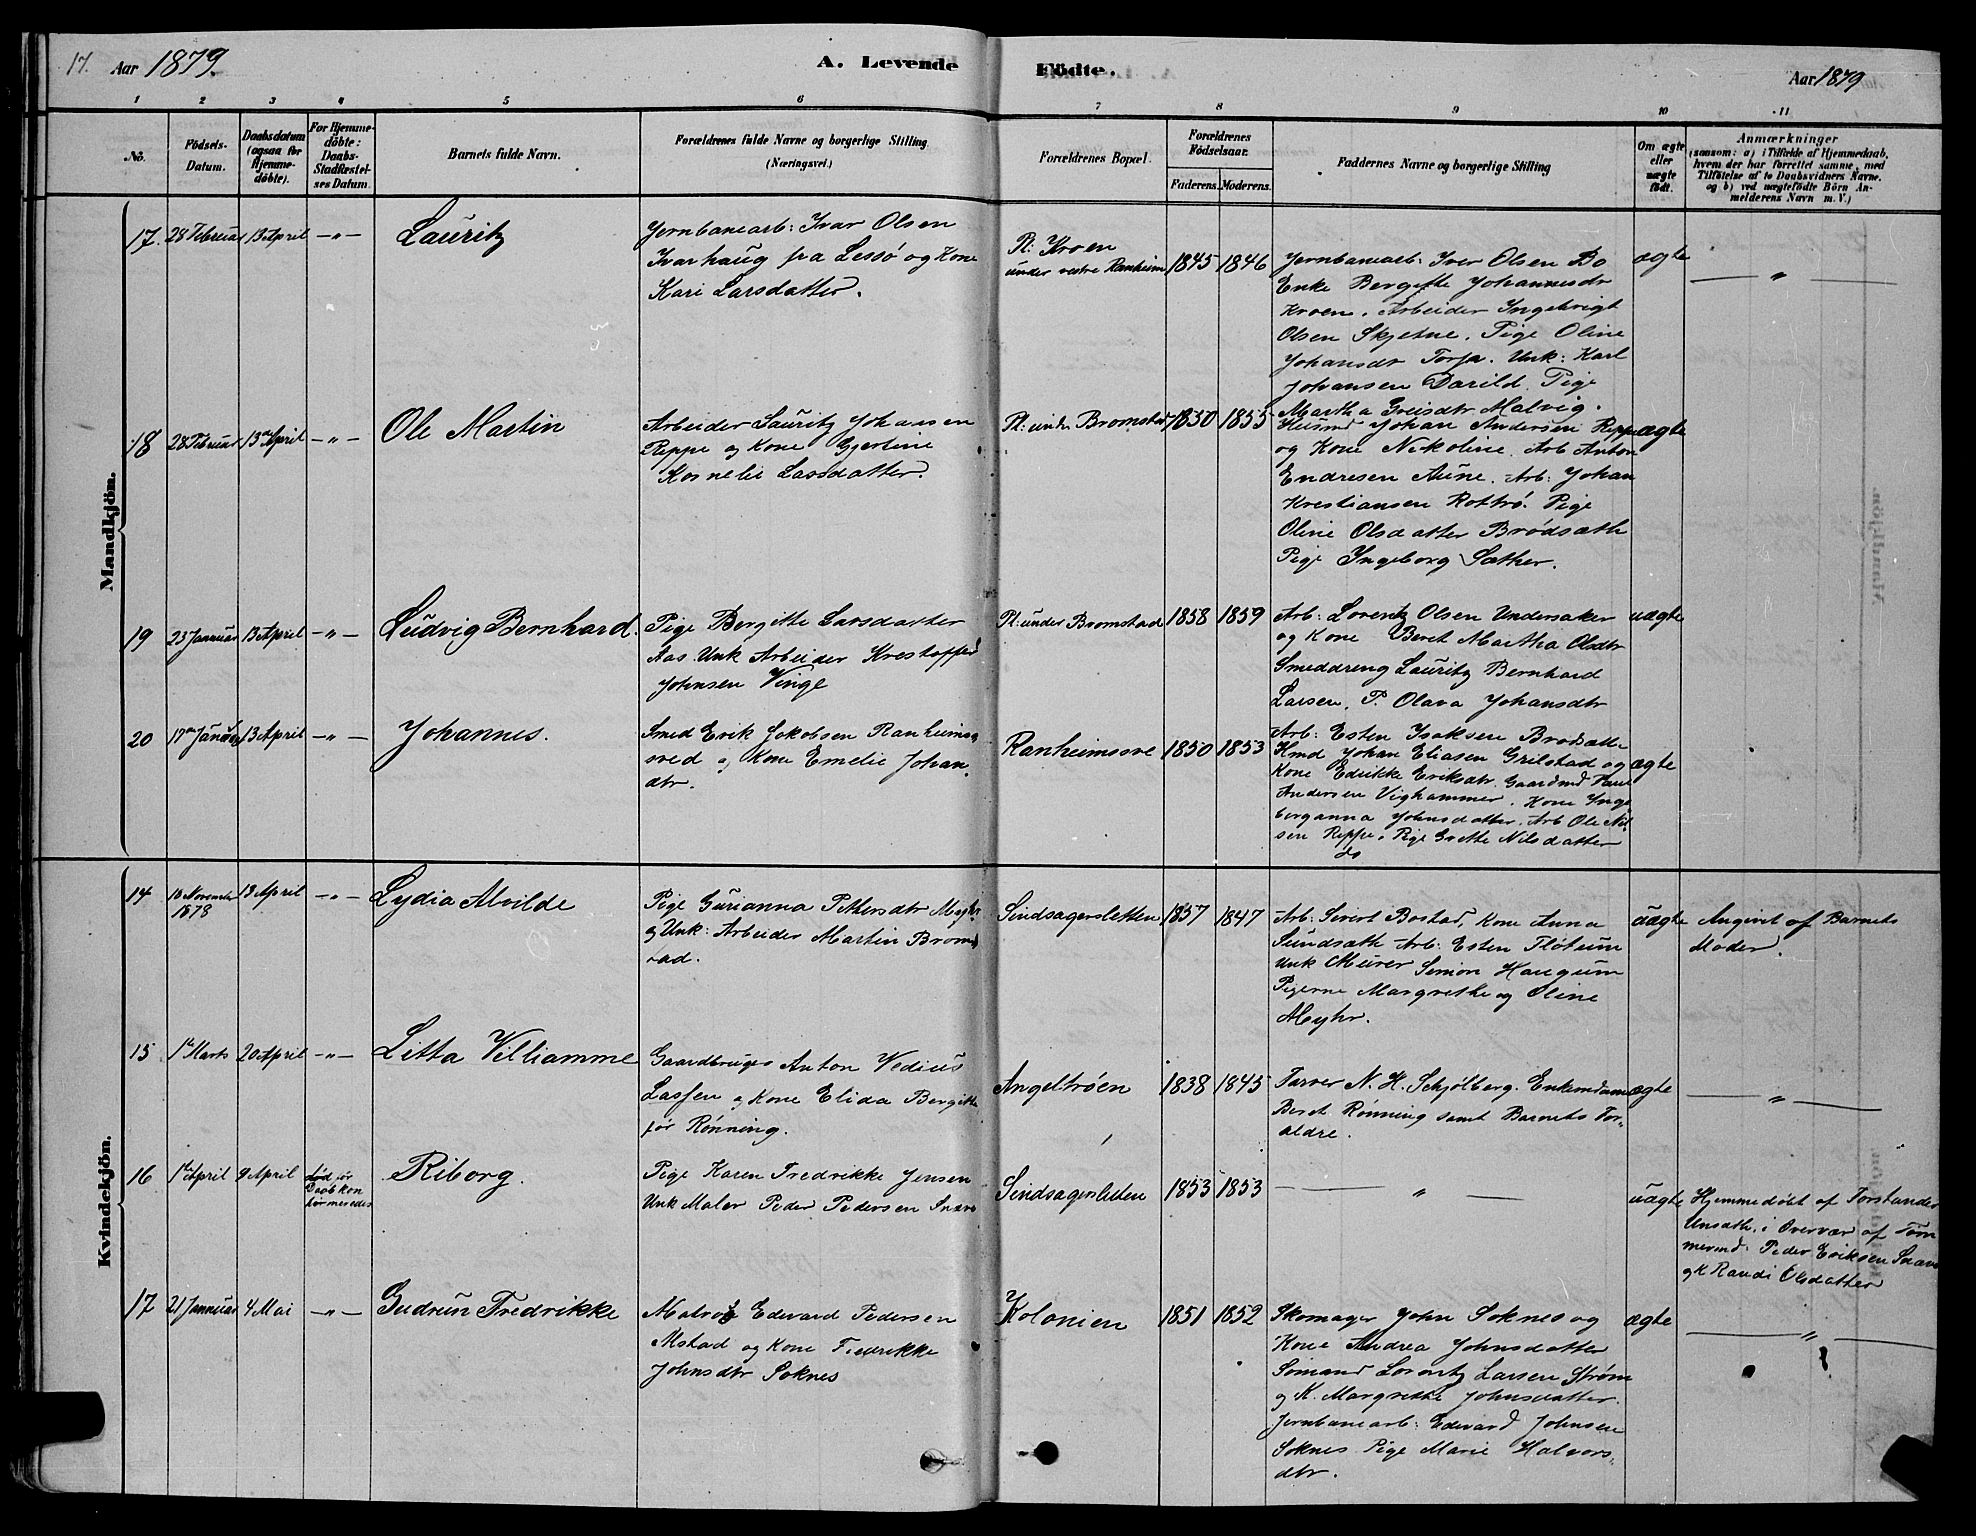 17. Aar 1879. A. Levende Födte. Aar 1879
1 2 3 4 5 6 7 8 9 10 11
No.
Födsels-Datum.
Daabsdatum (ogsaa for Hjemme-döbte).
For Hjemme-döbte: Daabs-Stadfæstel-ses Datum.
Barnets fulde Navn.
Forældrenes fulde Navne og borgerlige Stilling (Næringsvei.)
Forældrenes Bopæl.
Forældrenes Födselsaar.
Faderens. Moderens.
Faddernes Navne og borgerlige Stilling
Om ægte eller uægte födt.
Anmærkninger
(saasom: a) i Tilfælde af Hjemmedaab,
hvem der har forrettet samme, med
Tilföielse af to Daabsvidners Navne.
og b) ved uægtefödte Börn An-
melderens Navn m. V.)
Mandkjön.
17. 28 Februar 13 April -"- Lauritz
Jernbanearb: Ivar Olsen
Ivarhaug fra Lessø og Kone
Kari Larsdatter.
Pl: Kroen
under vestre Ranheim
1845 1846
Jernbanearb: Iver Olsen Bo
Enke Bergitte Johannesdr
Kroen. Arbeider Ingebrigt
Olsen Skjetne. Pige Oline
Johansdr Torp. Unk: Karl
Johansen Darild. Pige
Martha Greisdtr Malvig.
ægte
— " —
18 28 Februar 13 April -"- Ole Martin
Arbeider Lauritz Johansen
Reppe og Kone Gjertine
Kornelie Larsdatter.
Pl: under Bromstad
1850 1855
Husmd Johan Andersen Reppe
og Kone Nikoline. Arb Anton
Endresen Aune. Arb: Johan
Kristiansen Rottrö. Pige
Oline Olsdatter Brödsæth
Pige Ingeborg Sæther.
ægte
19 23 Januar 13 April -"- Ludvig Bernhard.
Pige Bergitte Larsdatter
Aas Unk Arbeider Kristoffer
Johnsen Vinge
Pl: under Bromstad
1858 1859
Arb: Lorentz Olsen Undersaker
og Kone Beret Martha Olsdtr
Smeddreng Lauritz Bernhard
Larsen. P. Olava Johansdtr
uægte
20 17 Januar 13 April -"- Johannes.
Smed Erik Jakobsen Ranheims
sved og Kone Emelie Johan
dtr.
Ranheimssve
1850 1853
Arb: Esten Isaksen Brodsæth
Hmd Johan Eliasen Grilstad og
Kone Edrikke Eriksdtr. Gaardmd Paul
Andersen Vighammer. Kone Inge
borganna Johnsdatter. Arb Ole Nil-
sen Reppe. Pige Grethe Nilsdatter
do
ægte
Kvindekjön.
14 10 November 1878 13 April -"- Lydia Alvilde
Pige Gurianna Pettersdtr Myhr
og Unk: Arbeider Martin Brom
stad.
Sindsagersletten
1857 1847
Arb: Sivert Bostad, Kone Anna
Sundsæth Arb: Esten Flötum
Unk Murer Simon Haugum
Pigerne Margrethe og Oline
Myhr.
uægte
Angivet af Barnets
Moder.
15 1 Marts 20 April -"- Litta Villiamme
Gaardbruger Anton Vedius
Lassen og Kone Elida Bergitte
för Rönning.
Angeltröen
1838 1845
Farver N. H. Schjölberg. Enkemadam
Beret Rönning samt Barnets For-
ældre.
ægte
— " —
16 1 April 9 April död för Daab kon firmeredes Riborg.
Pige Karen Fredrikke Jensen
Unk Maler Peder Pedersen Snare
Sindsagersletten
1853 1853
— " —
uægte
Hjemmedöbt af Forstander
Unsæth, i Overvær af Töm
mermd. Peder Eriksen Snare
og K Randi Olsdatter
17 21 Januar 4 Mai -"- Gudrun Fredrikke
Matros Edevard Pedersen
Mstad og Kone Fredrikke
Johnsdtr Soknes
Kolonien
1851 1852
Skomager John Soknes og
Kone Andrea Johnsdatter
Sömand Lorentz Larsen Ström
og K. Margrethe Johnsdatter.
Jernbanearb: Edevard Johnsen
Soknes Pige Marie Halvors-
dtr.
ægte
— " —